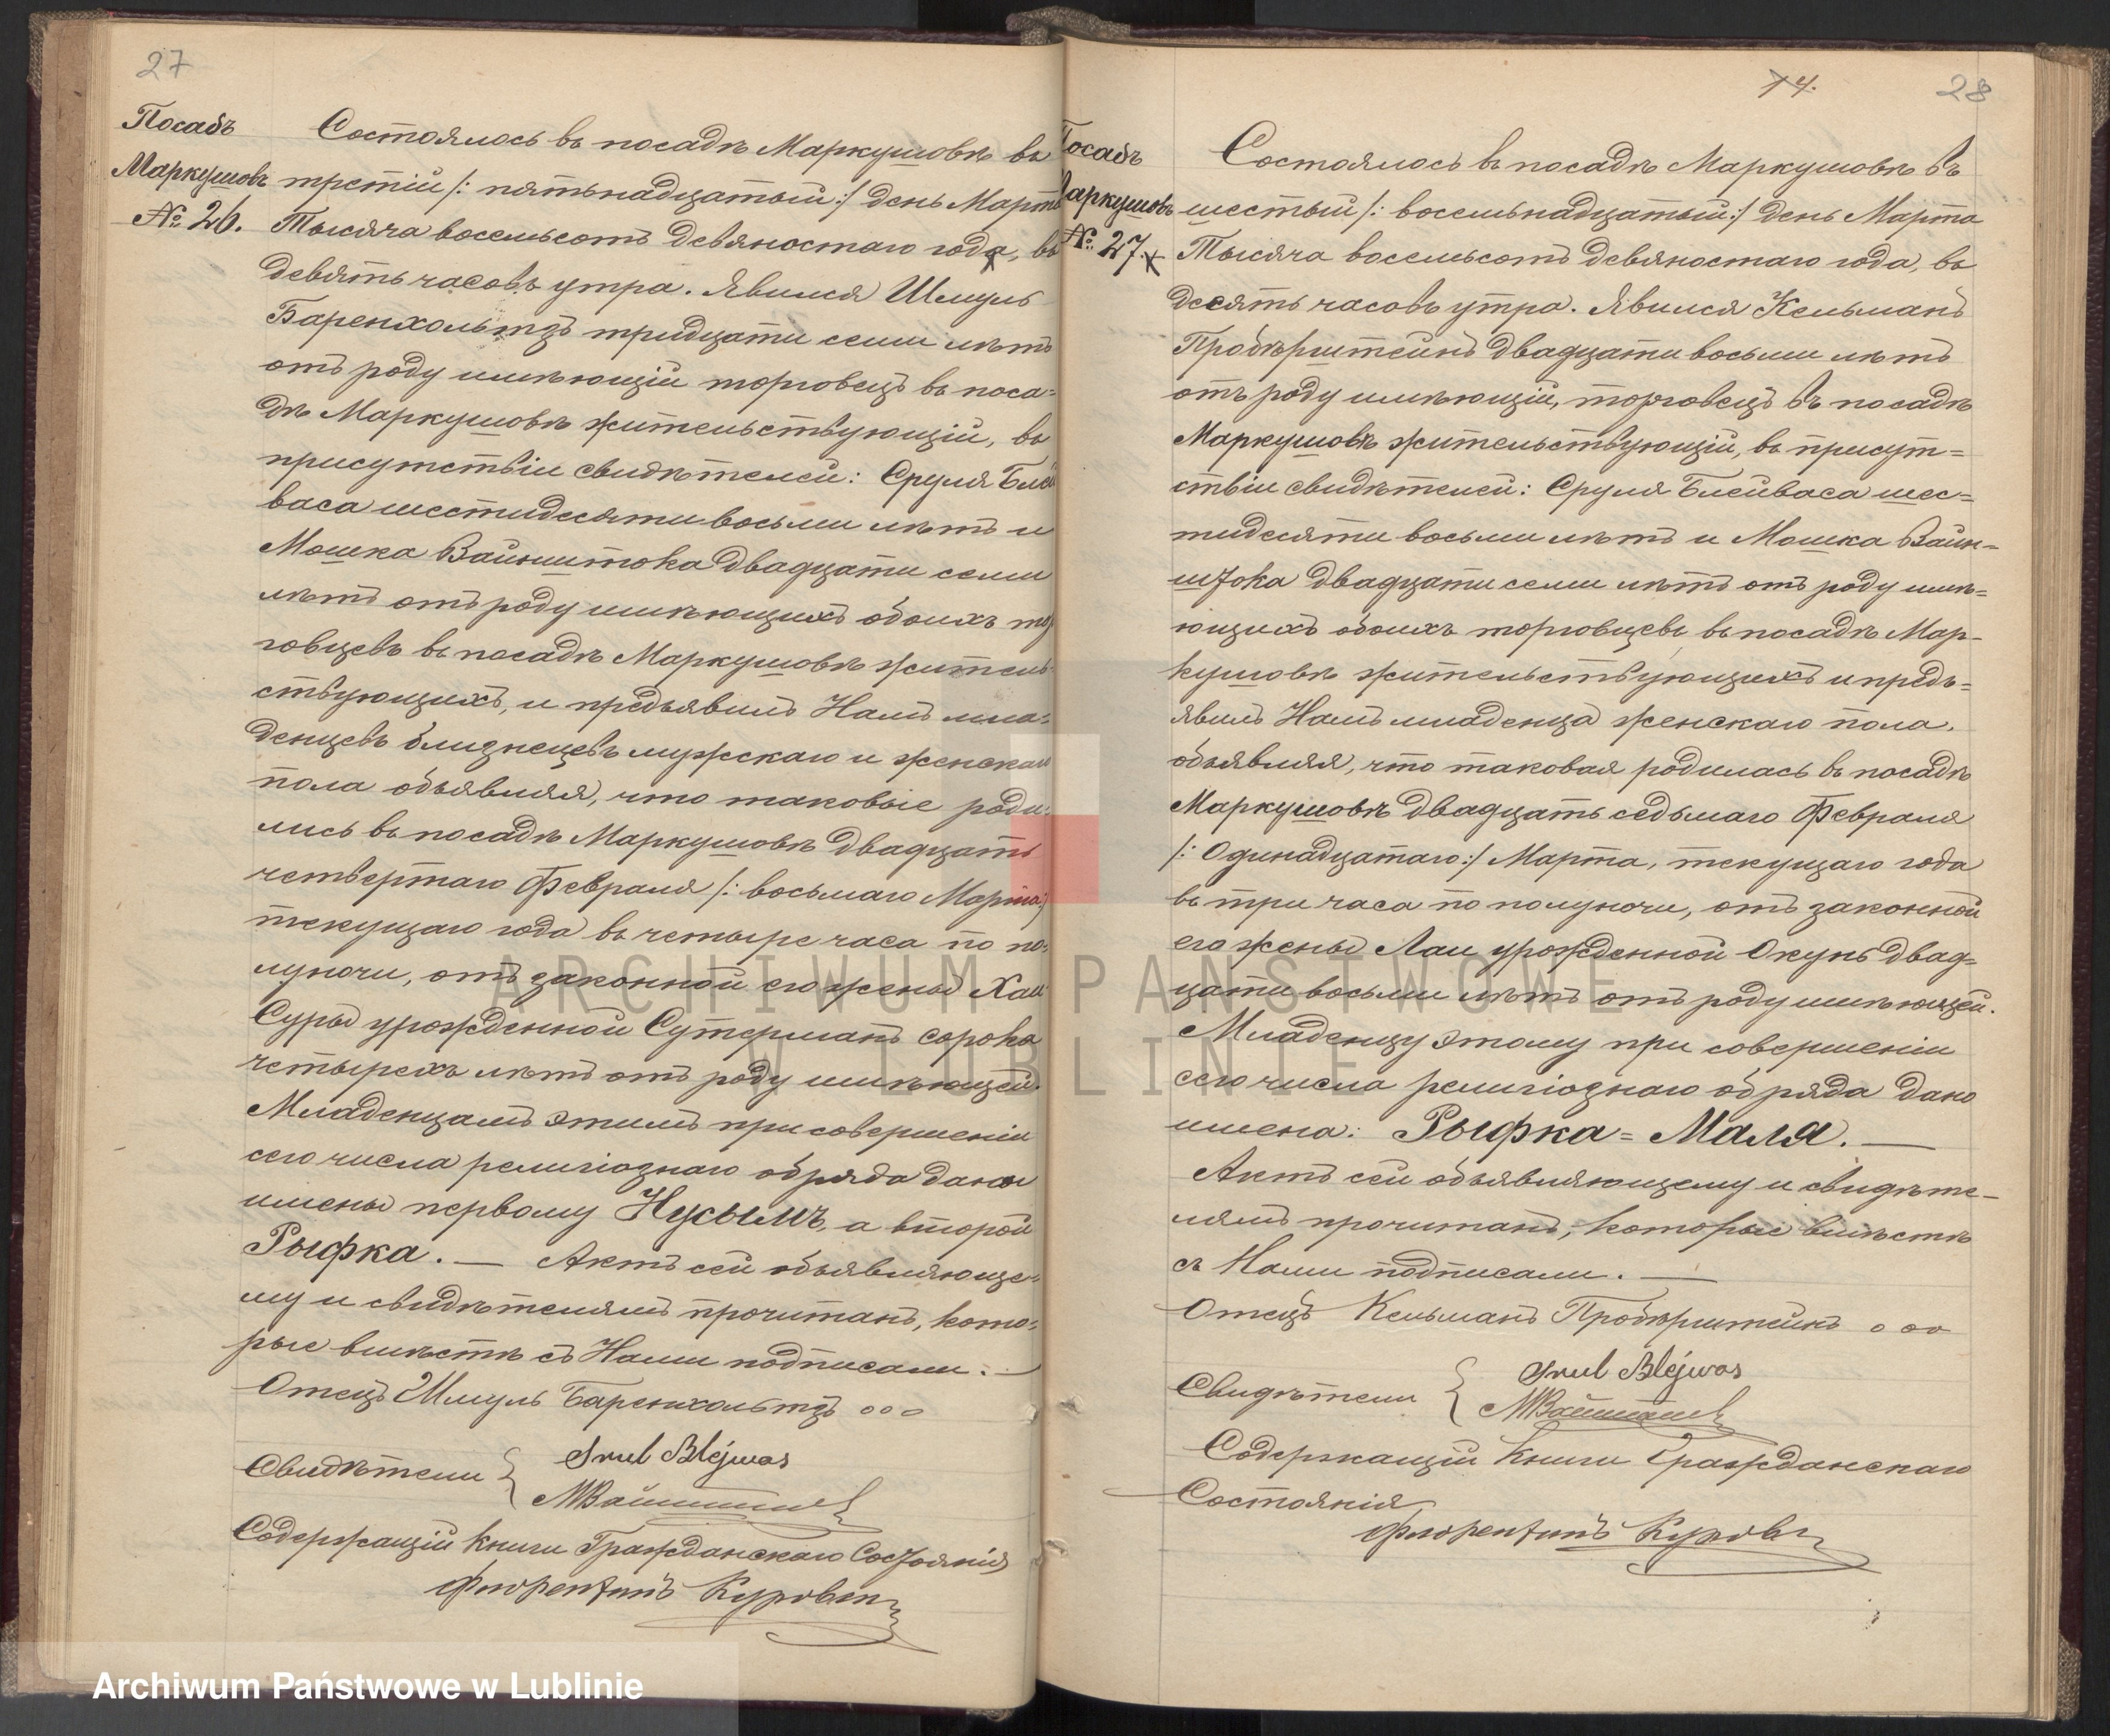 27
Посадъ
Маркушовъ
№ 26.
Состоялось въ посадѣ Маркушовѣ въ
третій /: пятьнадцатый :/ день Марта
Тысяча восемьсотъ девяностаго года, въ
девять часовъ утра. Явился Шмуль
Баренхольтцъ тридцати семи лѣтъ
отъ роду имѣющій торговецъ въ поса=
дѣ Маркушовѣ жительствующій, въ
присутствіи свидѣтелей: Сруля Блей
васа шестидесяти восьми лѣтъ и
Мошка Вайнштока двадцати семи
лѣтъ отъ роду имѣющихъ обоихъ тор
говцевъ въ посадѣ Маркушовѣ житель=
ствующихъ, и предъявилъ Намъ мла=
денцевъ близнецевъ мужскаго и женскаго
пола объявляя, что таковые роди=
лись въ посадѣ Маркушовѣ двадцать
четвертаго Февраля /: восьмаго Марта :/
текущаго года въ четыре часа по по=
луночи, отъ законной его жены Хаи
Суры урожденной Сутерманъ сорока
четырехъ лѣтъ отъ роду имѣющей.
Младенцамъ этимъ при совершеніи
сего числа религіознаго обряда даны
имены первому Нусымъ, а второй
Рыфка. — Актъ сей объявляюще=
му и свидѣтелямъ прочитанъ, кото=
рые вмѣстѣ съ Нами подписали. —
Отецъ Шмуль Баренхольтцъ ooo
Свидѣтели { Srul Blejwas
МВайншток
Содержащій книги Гражданскаго Состоянія
Флорентинъ Куровск
14.
28
Посадъ
Маркушовъ
№ 27.
Состоялось въ посадѣ Маркушовѣ въ
шестый /: восемьнадцатый :/ день Марта
Тысяча восемьсотъ девяностаго года, въ
десять часовъ утра. Явился Кельманъ
Пробѣрштейнъ двадцати восьми лѣтъ
отъ роду имѣющій, торговецъ въ посадѣ
Маркушовѣ жительствующій, въ присут=
ствіи свидѣтелей: Сруля Блейваса шес=
тидесяти восьми лѣтъ и Мошка Вайн=
штока двадцати семи лѣтъ отъ роду имѣ=
ющихъ обоихъ торговцевъ, въ посадѣ Мар-
кушовѣ жительствующихъ и предъ=
явилъ Намъ младенца женскаго пола,
объявляя, что таковая родилась въ посадѣ
Маркушовѣ двадцать седьмаго Февраля
/: Одинадцатаго :/ Марта, текущаго года
въ три часа по полуночи, отъ законной
его жены Лаи урожденной Окунь двад=
цати восьми лѣтъ отъ роду имѣющей.
Младенцу этому при совершеніи
сего числа религіознаго обряда дано
имена: Рыфка = Маля. —
Актъ сей объявляющему и свидѣте-
лямъ прочитанъ, которые вмѣстѣ
съ Нами подписали. —
Отецъ Кельманъ Пробѣрштейнъ ooo
Свидѣтели { Srul Blejwas
МВайншток
Содержащій книги Гражданскаго
Состоянія
Флорентинъ Куровск
ARCHIWUM PAŃSTWOWE
W LUBLINIE
Archiwum Państwowe w Lublinie